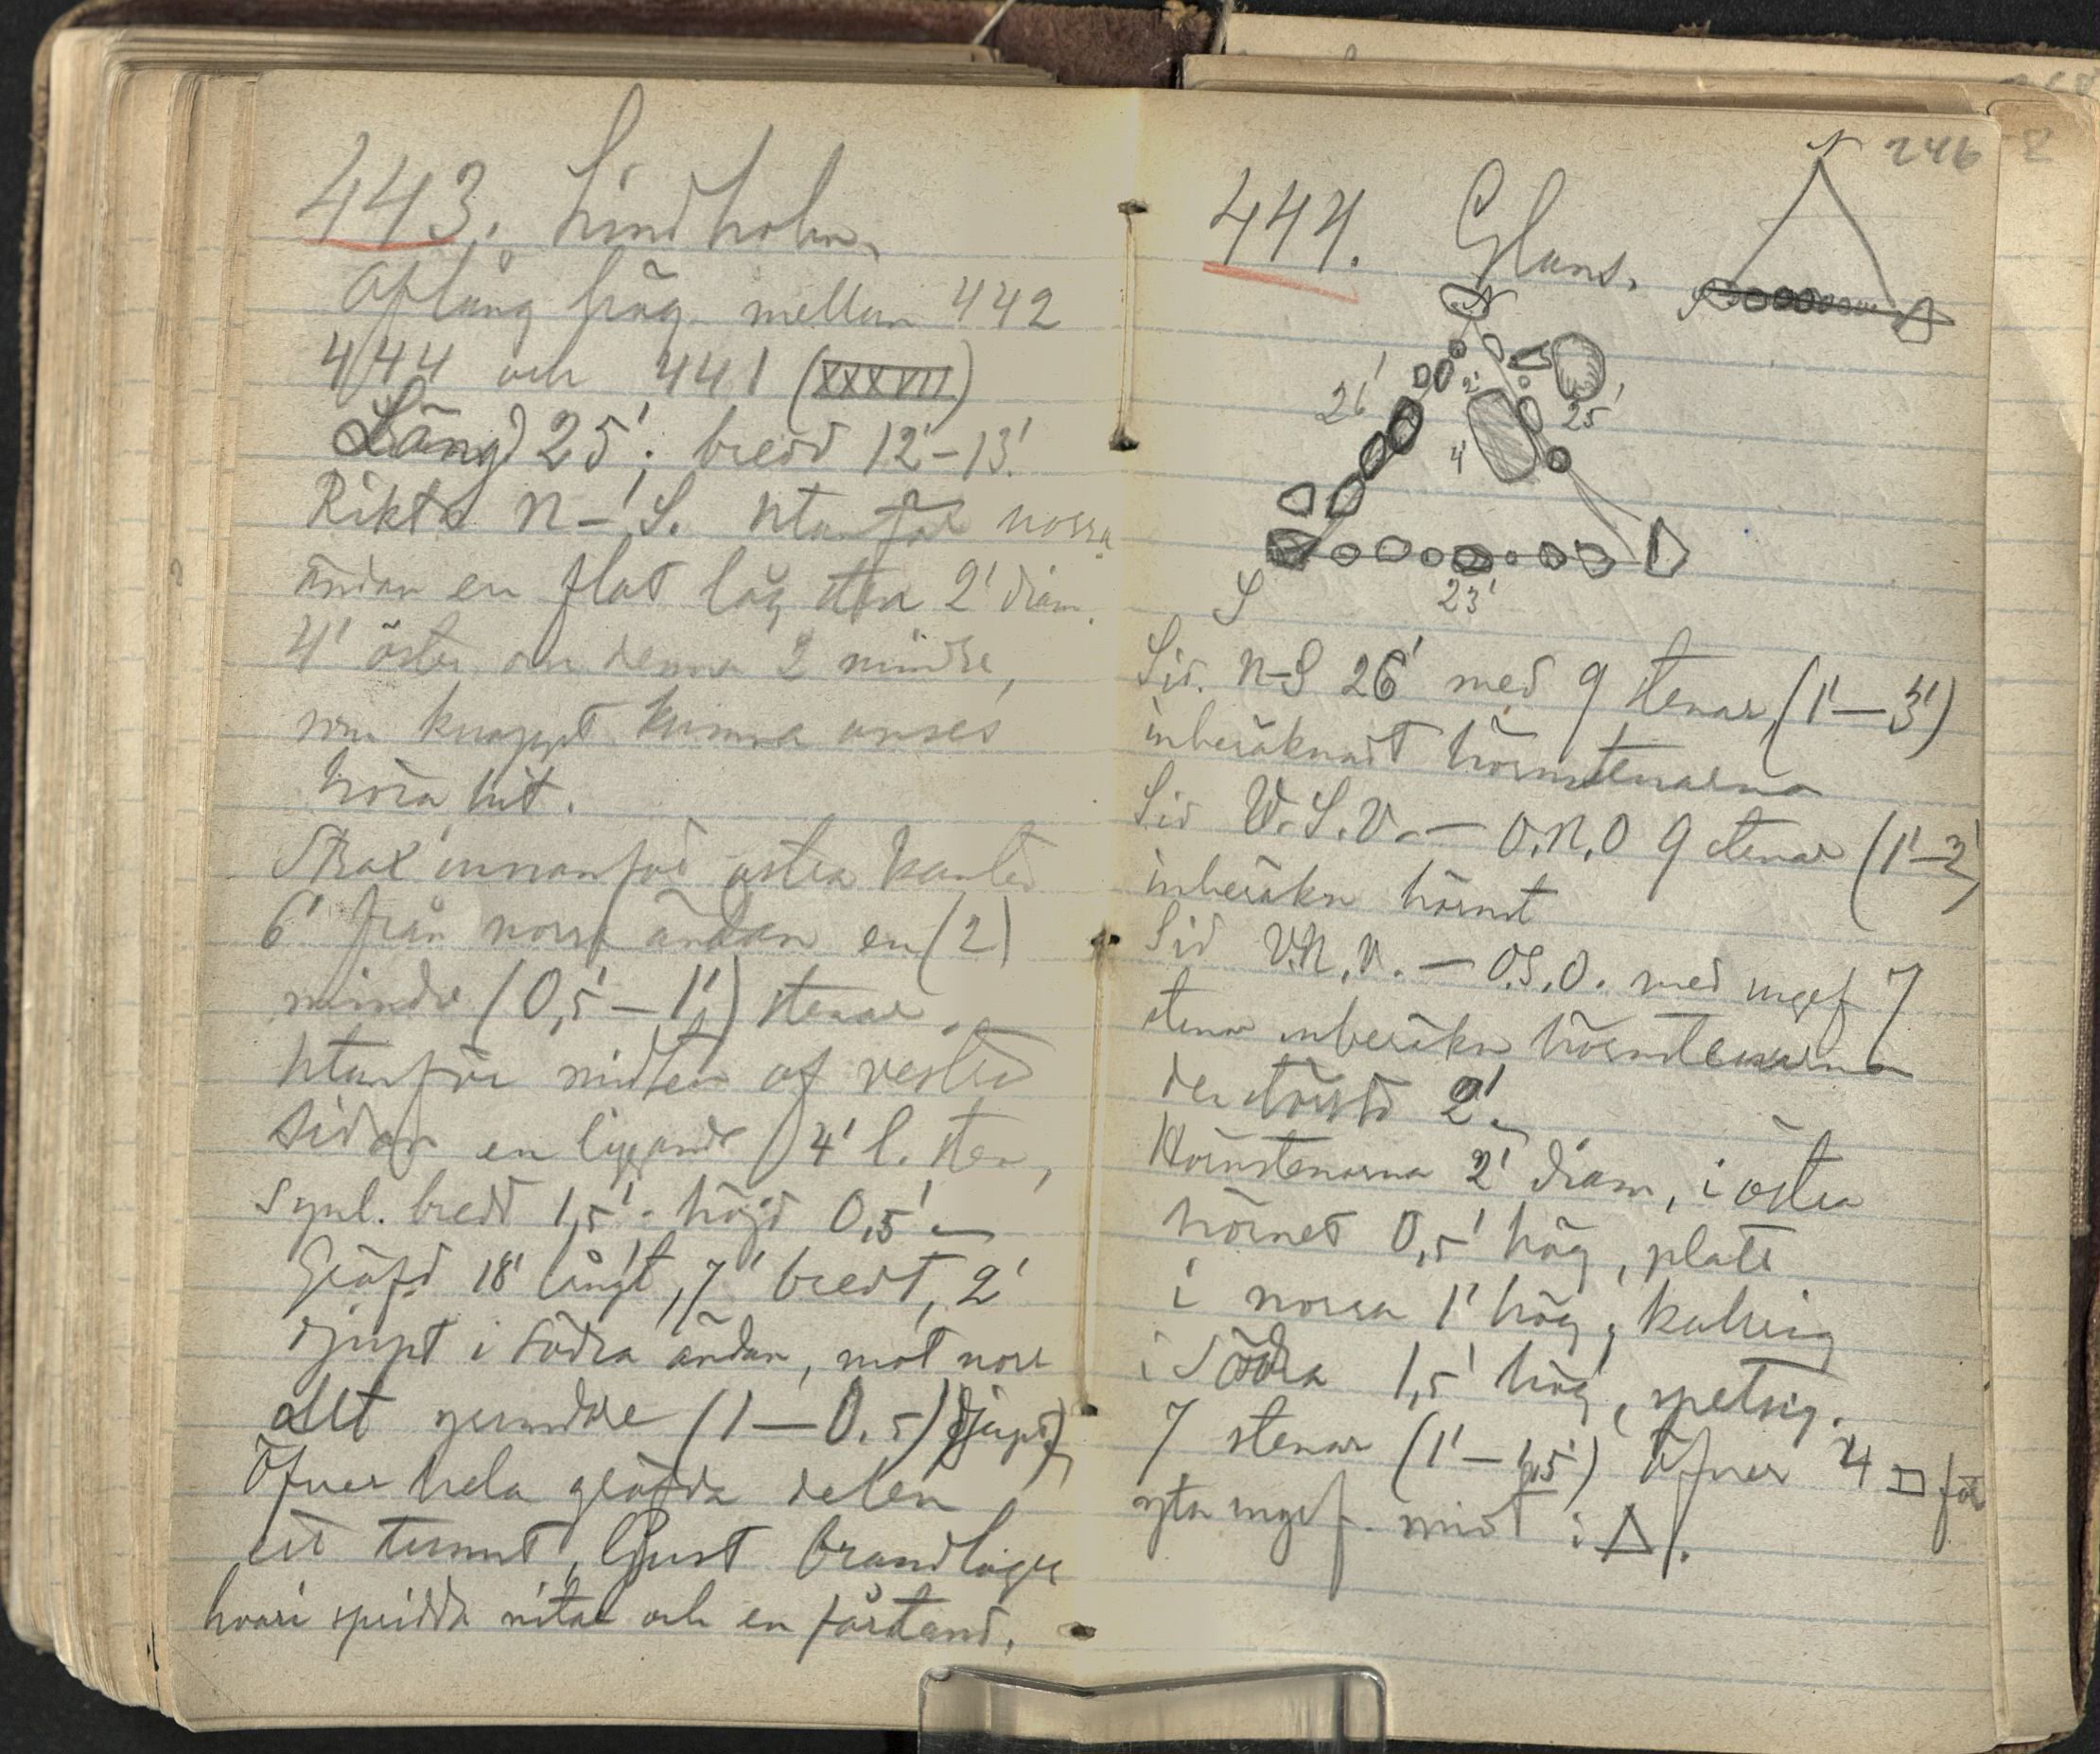 443. Lindholm.
Aflång hög mellan 442
444 och 441 (XXXVIII)
Längd 25'; bredd 12'-13'.
Rikt. n-S. Utanför norra
ändan en flat låg sten 2' diam.
4' öster om denna 2 mindre,
som knappt kunna anses
höra hit.
Strax innanför östra kanten
6' från norra ändan en (2)
mindre (0,5'-1') stenar.
Utanför midten af vestra
sidan en liggande 4' l. sten,
synl. bredd 1,5'; höjd 0,5'.
Gräfd 18' långt, 7' bredt, 2'
djupt i södra ändan, mot norr
allt grundare (1-0.5) djupt.
Öfver hela gräfda delen
ett tunnt, ljust brandlager
hvari spridda nitar och en fårtand.
246
N
444. Glans.
N
26'
2'
25'
4'
S
23'
Sid. N-S 26' med 9 stenar, (1'-3')
inberäknadt hörnstenarna
Sid V.S.V. - O.N.O 9 stenar (1'-2')
inberäkn hörnst
Sid V.N.V. - O.S.O. med ungef 7
stenar inberäkn hörnstenarna
den största 2'.
Hörnstenarna 2' diam, i östra
hörnet 0,5' hög, platt
i norra 1' hög, kullrig
i södra 1,5' hög, spetsig.
7 stenar (1'-1,5') öfver 4 □ för
yta ungef. midt i △.